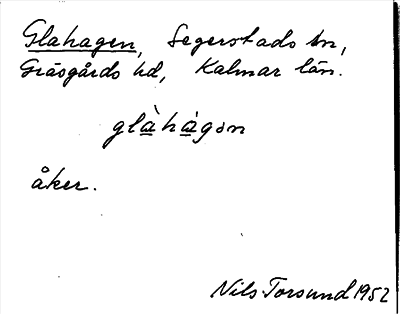 Glahagen, Segerstads sn,
Gräsgårds hd, Kalmar län.
glàhágən
åker.
Nils Torsund 1952